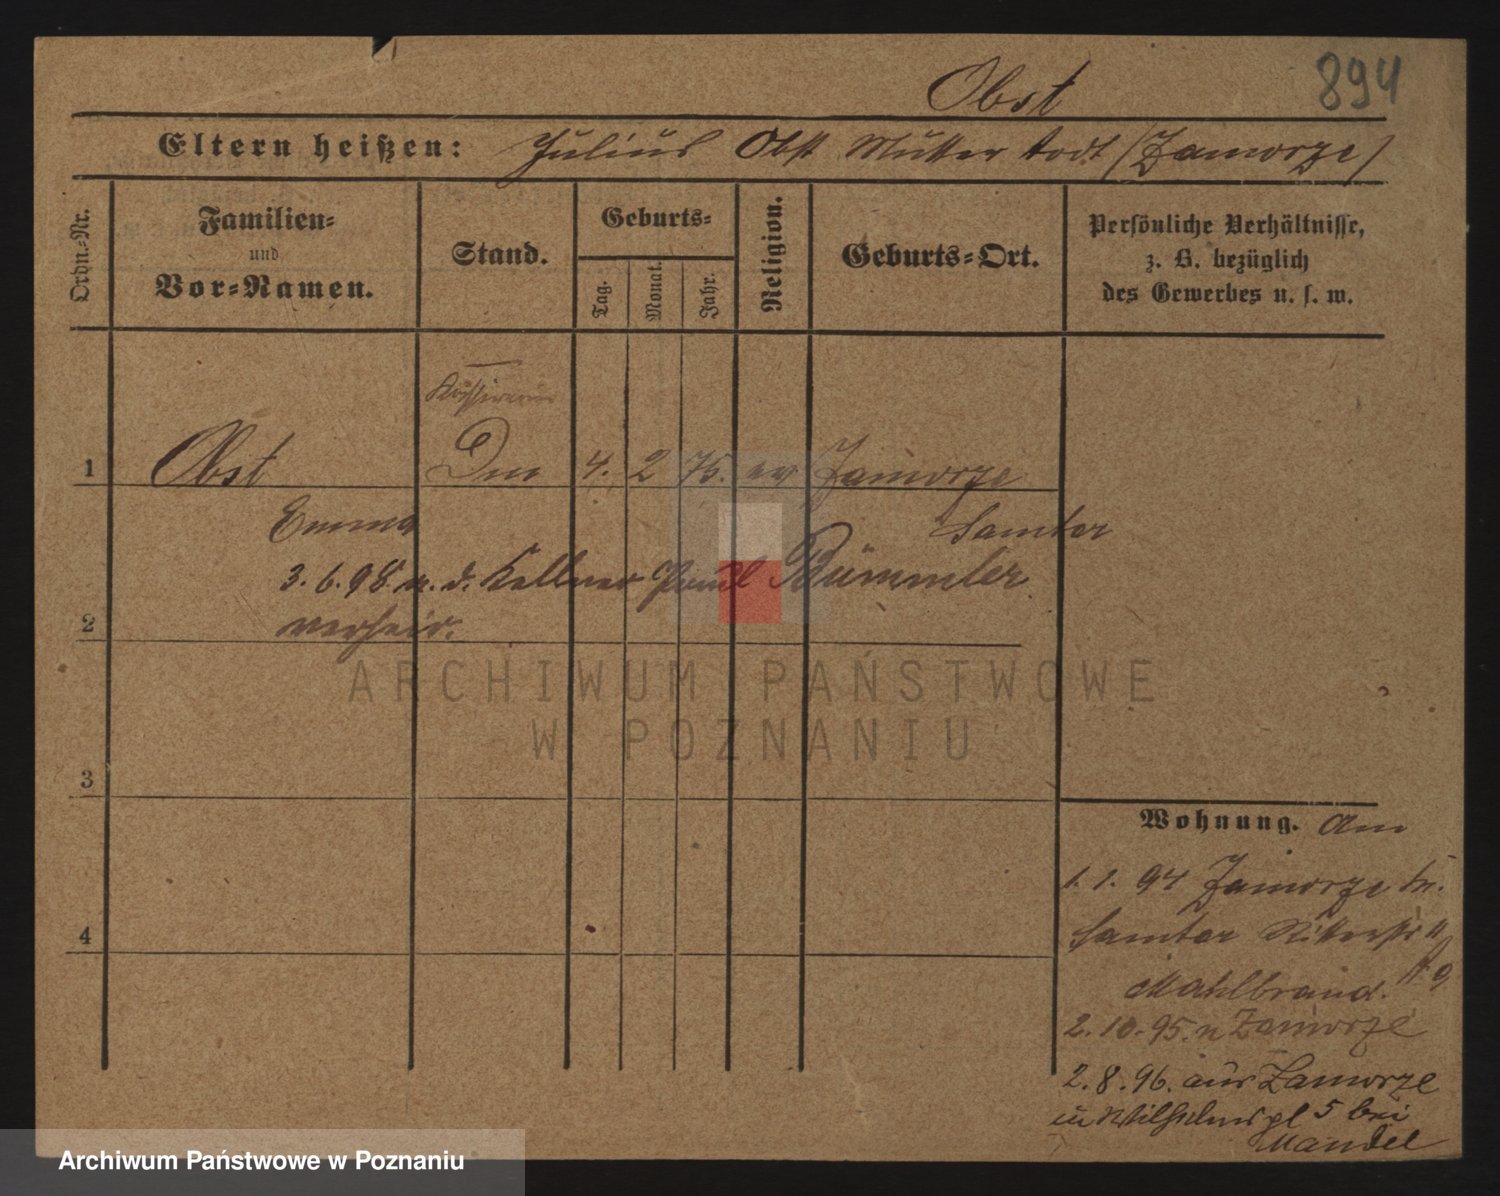 Obst 894
Eltern heißen: Julius Obst Mutter todt (Zamorze)
Ordn.-Nr.
Familien- und Vor-Namen.
Stand.
Geburts-
Tag. Monat. Jahr.
Religion.
Geburts-Ort.
Persönliche Verhältnisse,
z. B. bezüglich
des Gewerbes u. s. w.
1 Obst 4. 2 75. ev Zamorze
Emma Samter
3. 6. 98 m. d. Kellner Paul Bümmler
2 verheir.
3
4
Wohnung. Am
1. 1. 94 Zamorze
Samter Ritterstr 11
Mahlbrand.
2. 10. 95. n Zamorze
2. 8. 96. aus Zamorze
Wilhelmspl 5 bei
Mandel
ARCHIWUM PAŃSTWOWE
W POZNANIU
Archiwum Państwowe w Poznaniu